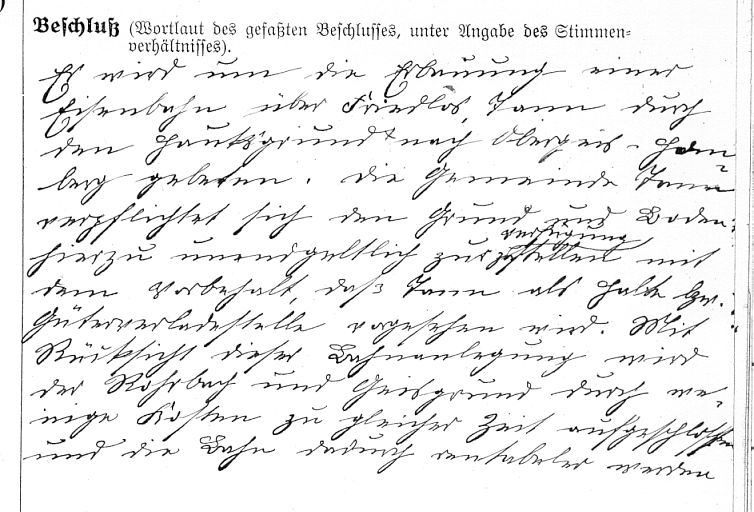 Beschluß (Wortlaut des gefaßten Beschlusses, unter Angabe des Stimmen-
verhältnisses).
Es wird um die Erbauung einer
Eisenbahn über Friedlos, Tann durch
den grund nach Obergeis - Hom
berg gebeten. Die Gemeinde Tann
verpflichtet sich den Grund und Boden
verfügung
hierzu unendgeltlich zur stellen mit
dem Vorbehalt, daß Tann als Halte bzw.
Güterverladestelle vogesehen wird. Mit
Rücksicht dieser Bahnanlegung wird
der Rohrbach und Geisgrund durch we-
nige Kosten zu gleicher Zeit aufgeschlossen
und die Bahn dadurch rentabeler werden